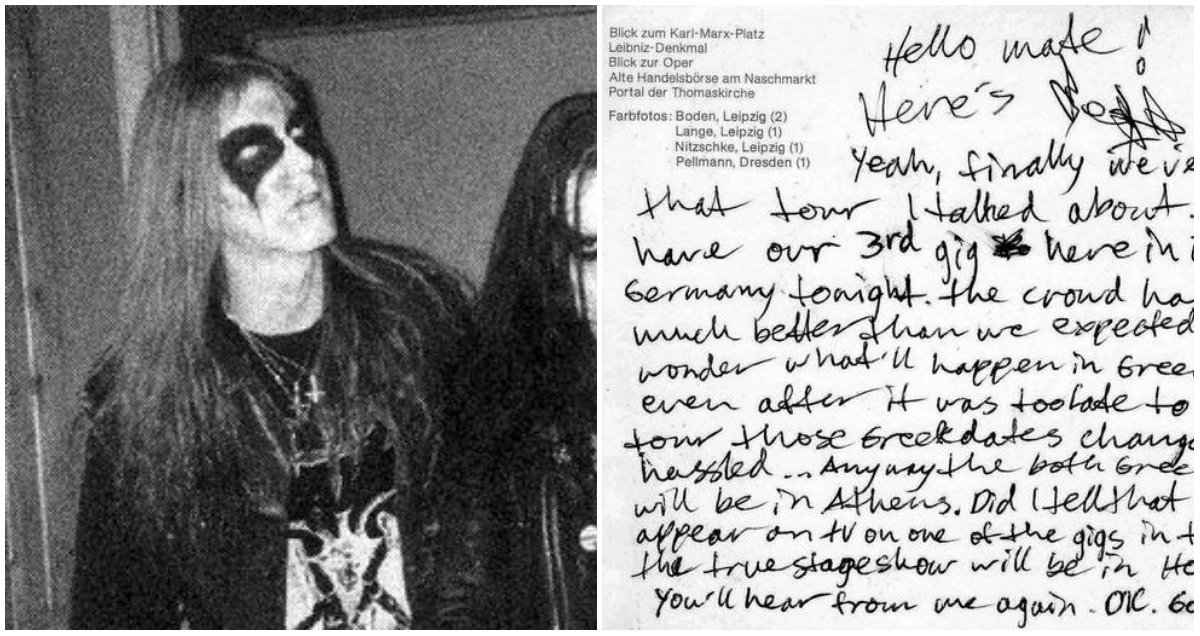 Blick zum Karl-Marx-Platz
Leibniz-Denkmal
Blick zur Oper
Alte Handelsbörse am Naschmarkt
Portal der Thomaskirche
Farbfotos: Boden, Leipzig (2)
Lange, Leipzig (1)
Nitzschke, Leipzig (1)
Pellmann, Dresden (1)
Hello mate!
Here's
Yeah, finally we've
that tour I talked about.
have our 3rd gig here in
Germany tonight. the crowd
much better than we expected
wonder what'll happen in
even after it was too late to
tour those Greek dates
hassled... Anyway the both
will be in Athens. Did I tell that
appear on tv on one of the gigs in
the true stageshow will be in
You'll hear from me again. OK.